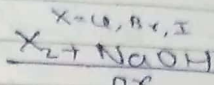 X = Cl, Br, I
X₂ + NaOH